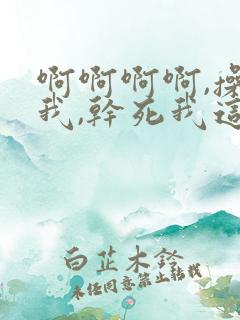 啊啊啊啊,操
我,幹死我這
白芷木鈴
未任同意禁止転載